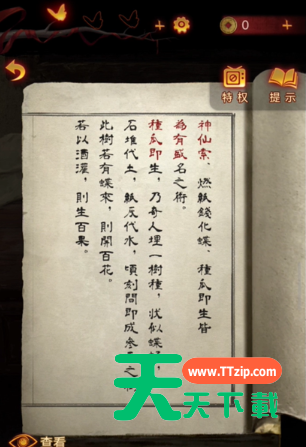 +
0
+
特权
提示
神仙索、燃紙錢化蝶、種瓜即生皆
為有盛名之術。
種瓜即生，乃奇人埋一樹種，狀似蝶
石堆代土，紙灰代水，頃刻間即成參之
此樹若有蝶來，則開百花。
若以酒灌，則生百果。
www.TTzip.com
天天下載
查看